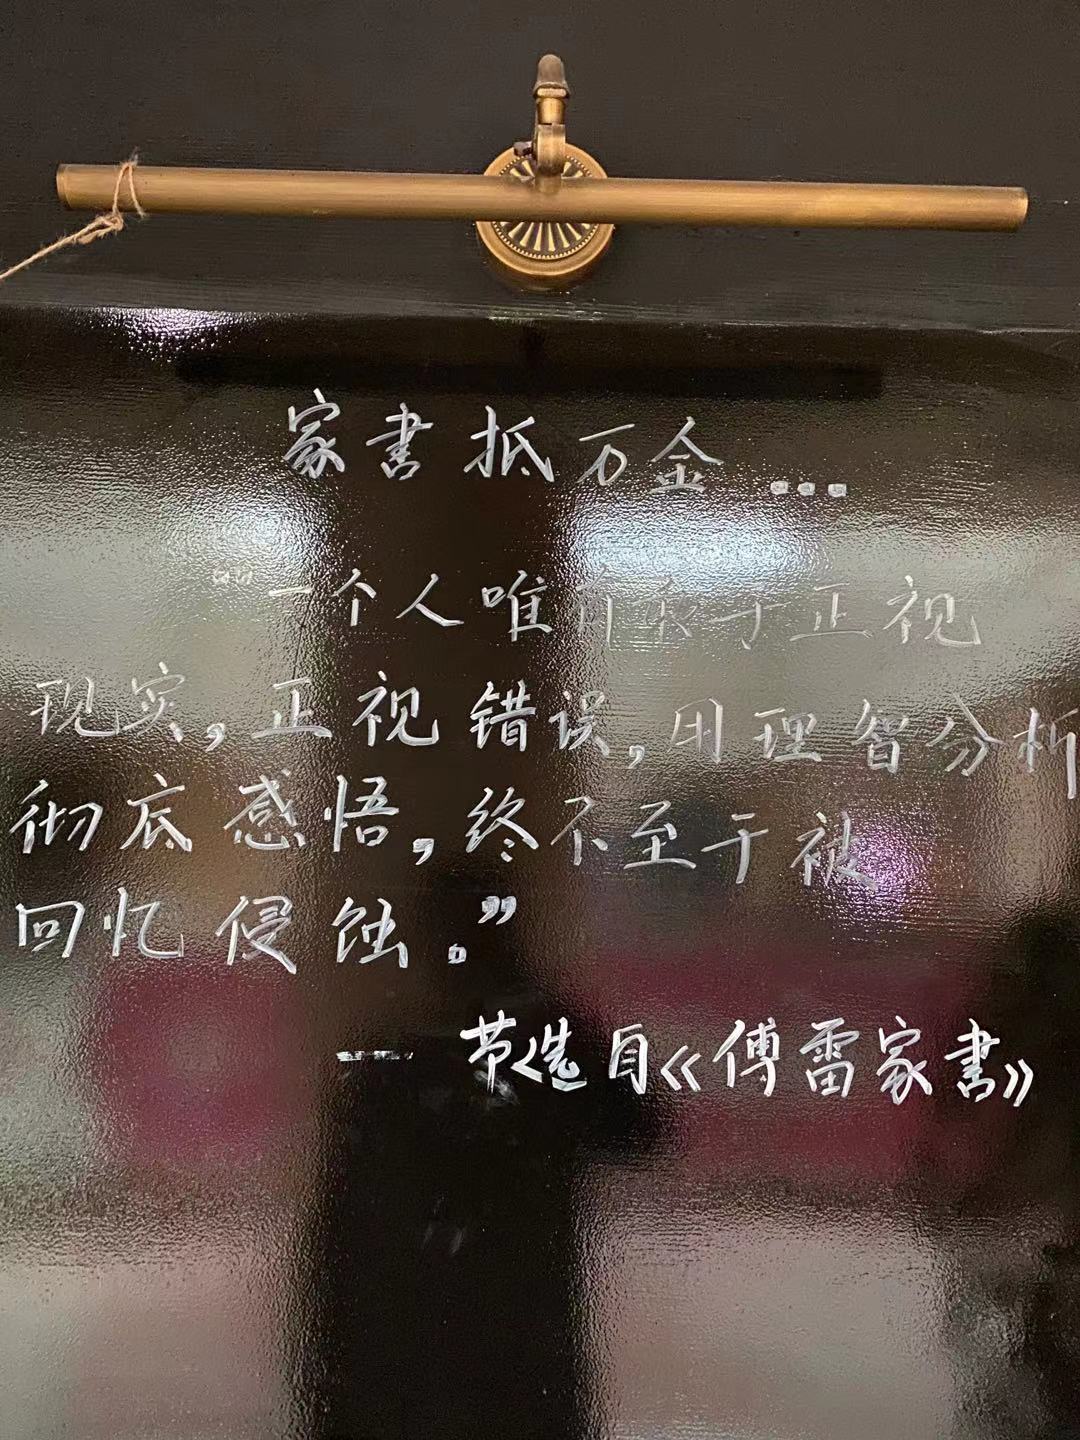 家书抵万金...
“一个人唯有敢于正视
现实,正视错误,用理智分析
彻底感悟,终不至于被
回忆侵蚀。”
— 节选自《傅雷家书》